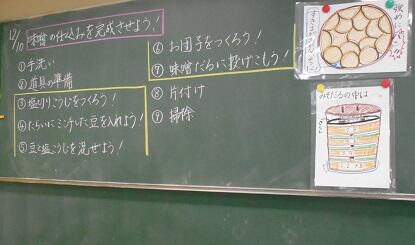 12/10 味噌の仕込みを完成させよう!
①手洗い
②道具の準備
③塩切りこうじをつくろう!
④たらいにミンチした豆を入れよう!
⑤豆と塩こうじを混ぜよう!
⑥お団子をつくろう!
⑦味噌だるに投げこもう!
⑧片付け
⑨掃除
強め
すきまがないように
みそだるの中は…